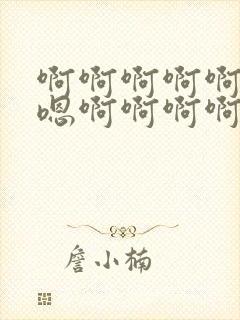 啊啊啊啊啊
嗯啊啊啊啊
詹小楠